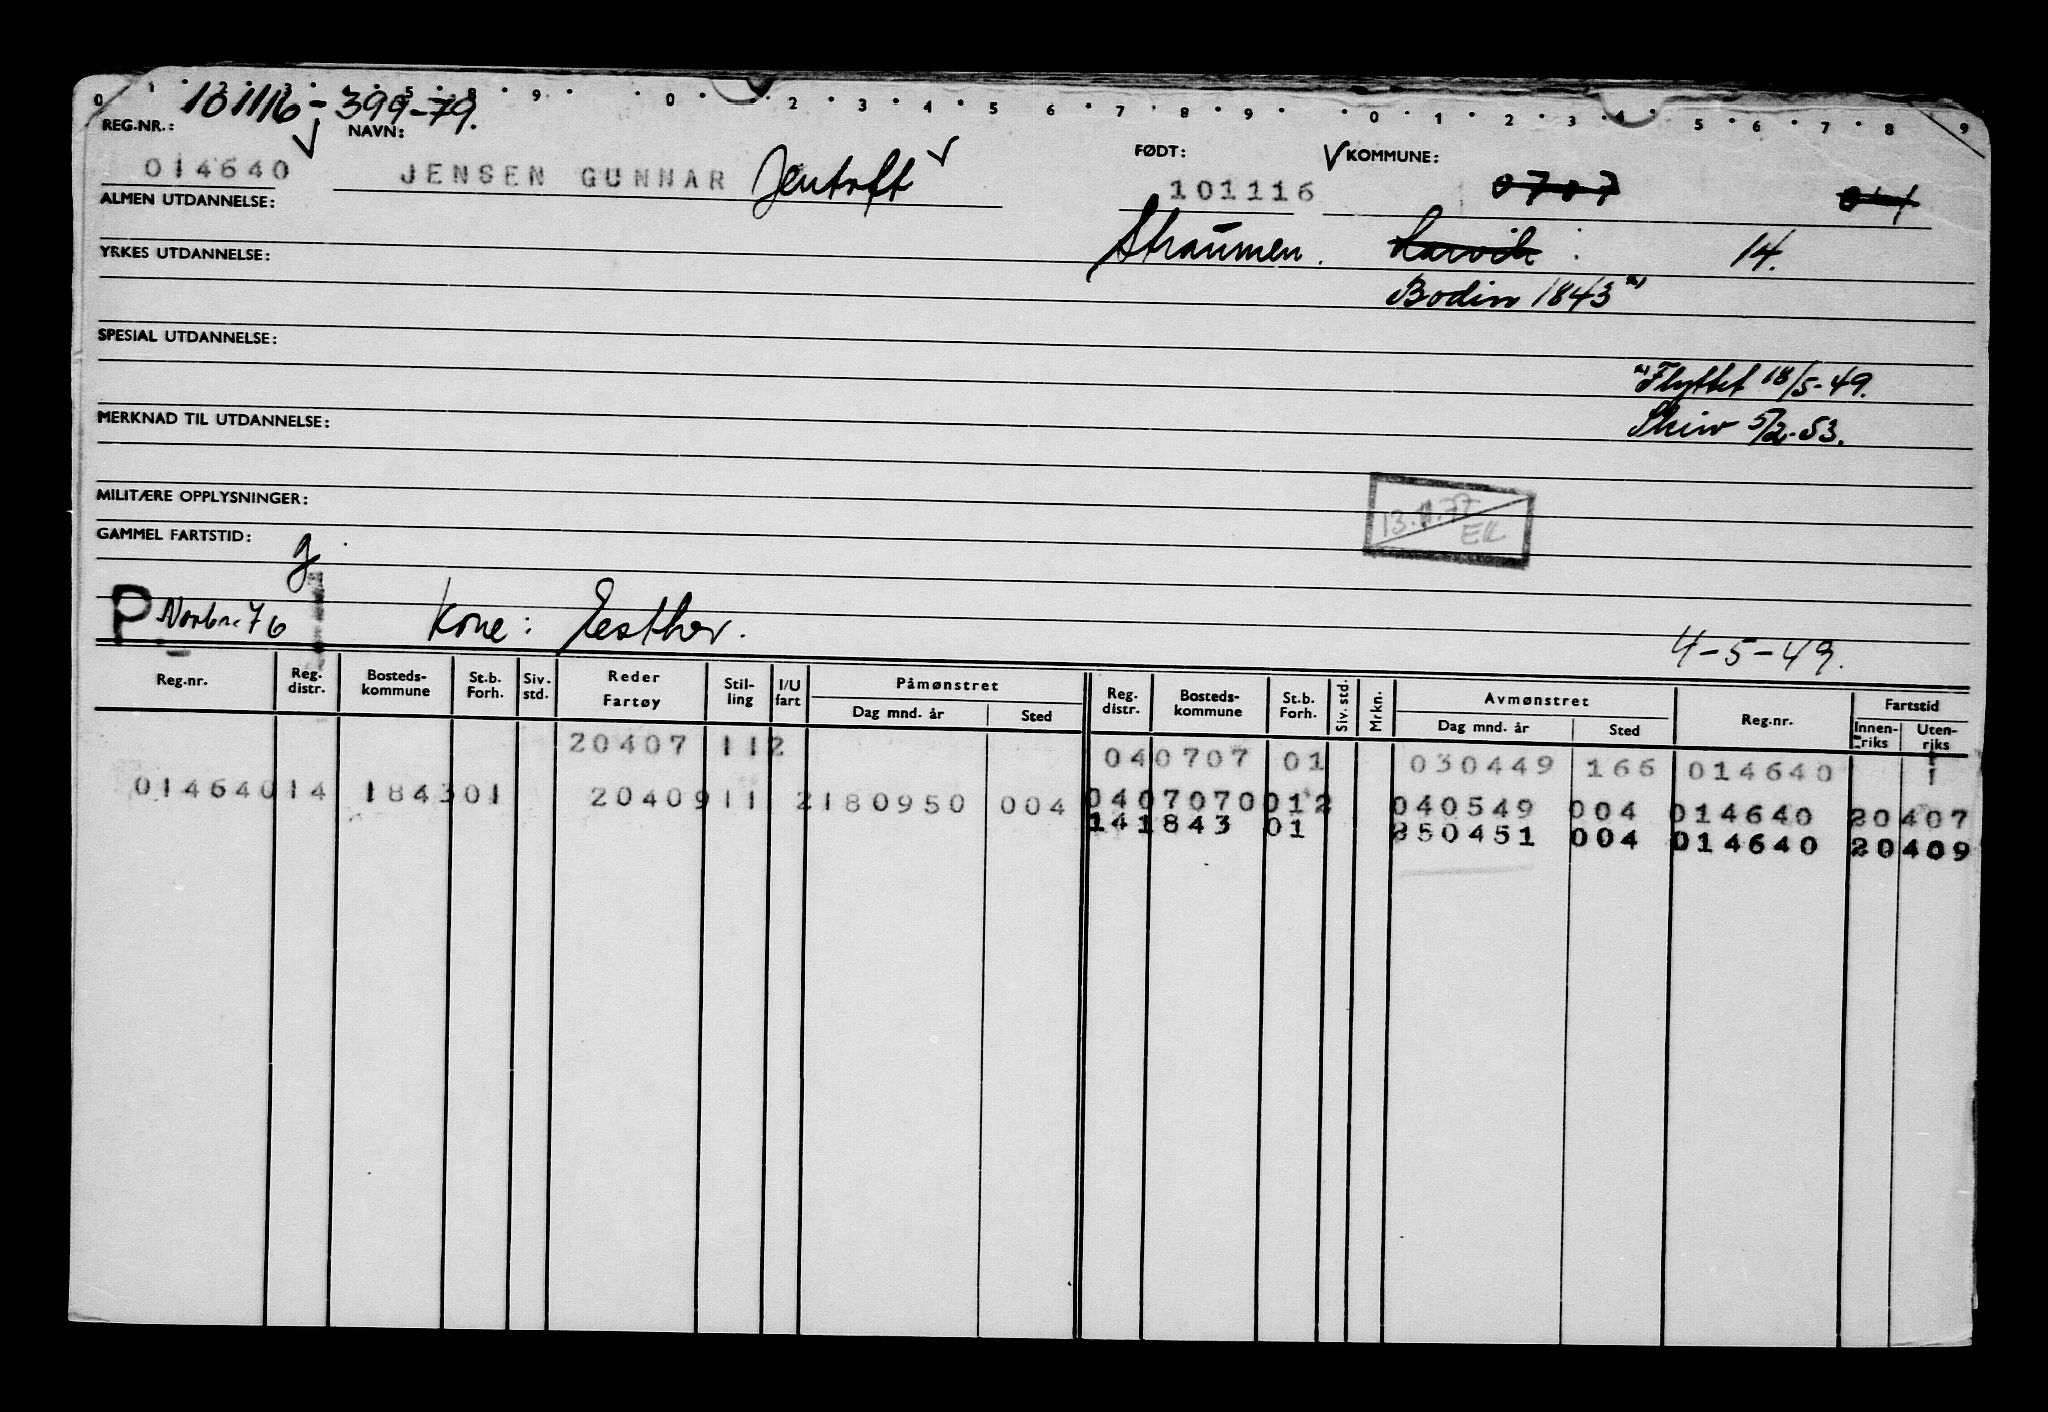 0 1 2 3 4 5 8 9 0 2 3 4 5 6 7 8 9 0 1 2 3 4 5 6 7 8 9
101116-399-79.
REG.NR.: NAVN: FØDT: KOMMUNE:
014640 JENSEN GUNNAR Jentoft 101116 0707
ALMEN UTDANNELSE:
Straumen. Larvik 14.
YRKES UTDANNELSE:
Bodin 1843 x)
SPESIAL UTDANNELSE:
x) Flyttet 18/5-49.
MERKNAD TIL UTDANNELSE:
Skiv 5/2-53.
MILITÆRE OPPLYSNINGER:
13.11.77
EK
GAMMEL FARTSTID: g
P Norbr. 76 Kone: Esther.
4-5-49.
Reg.nr. Reg. distr. Bosteds-kommune St.b. Forh. Siv. std. Reder Fartøy Stil-ling I/U fart Påmønstret Reg. distr. Bosteds-kommune St.b. Forh. Siv. std. Mrkn. Avmønstret Reg.nr. Fartstid
Dag mnd. år Sted Dag mnd. år Sted Innen-riks Uten-riks
20407 112 040707 01 030449 166 014640
014640 14 184301 20409 11 2 180950 004 0407070012 040549 004 014640 20407
141843 01 250451 004 014640 20409